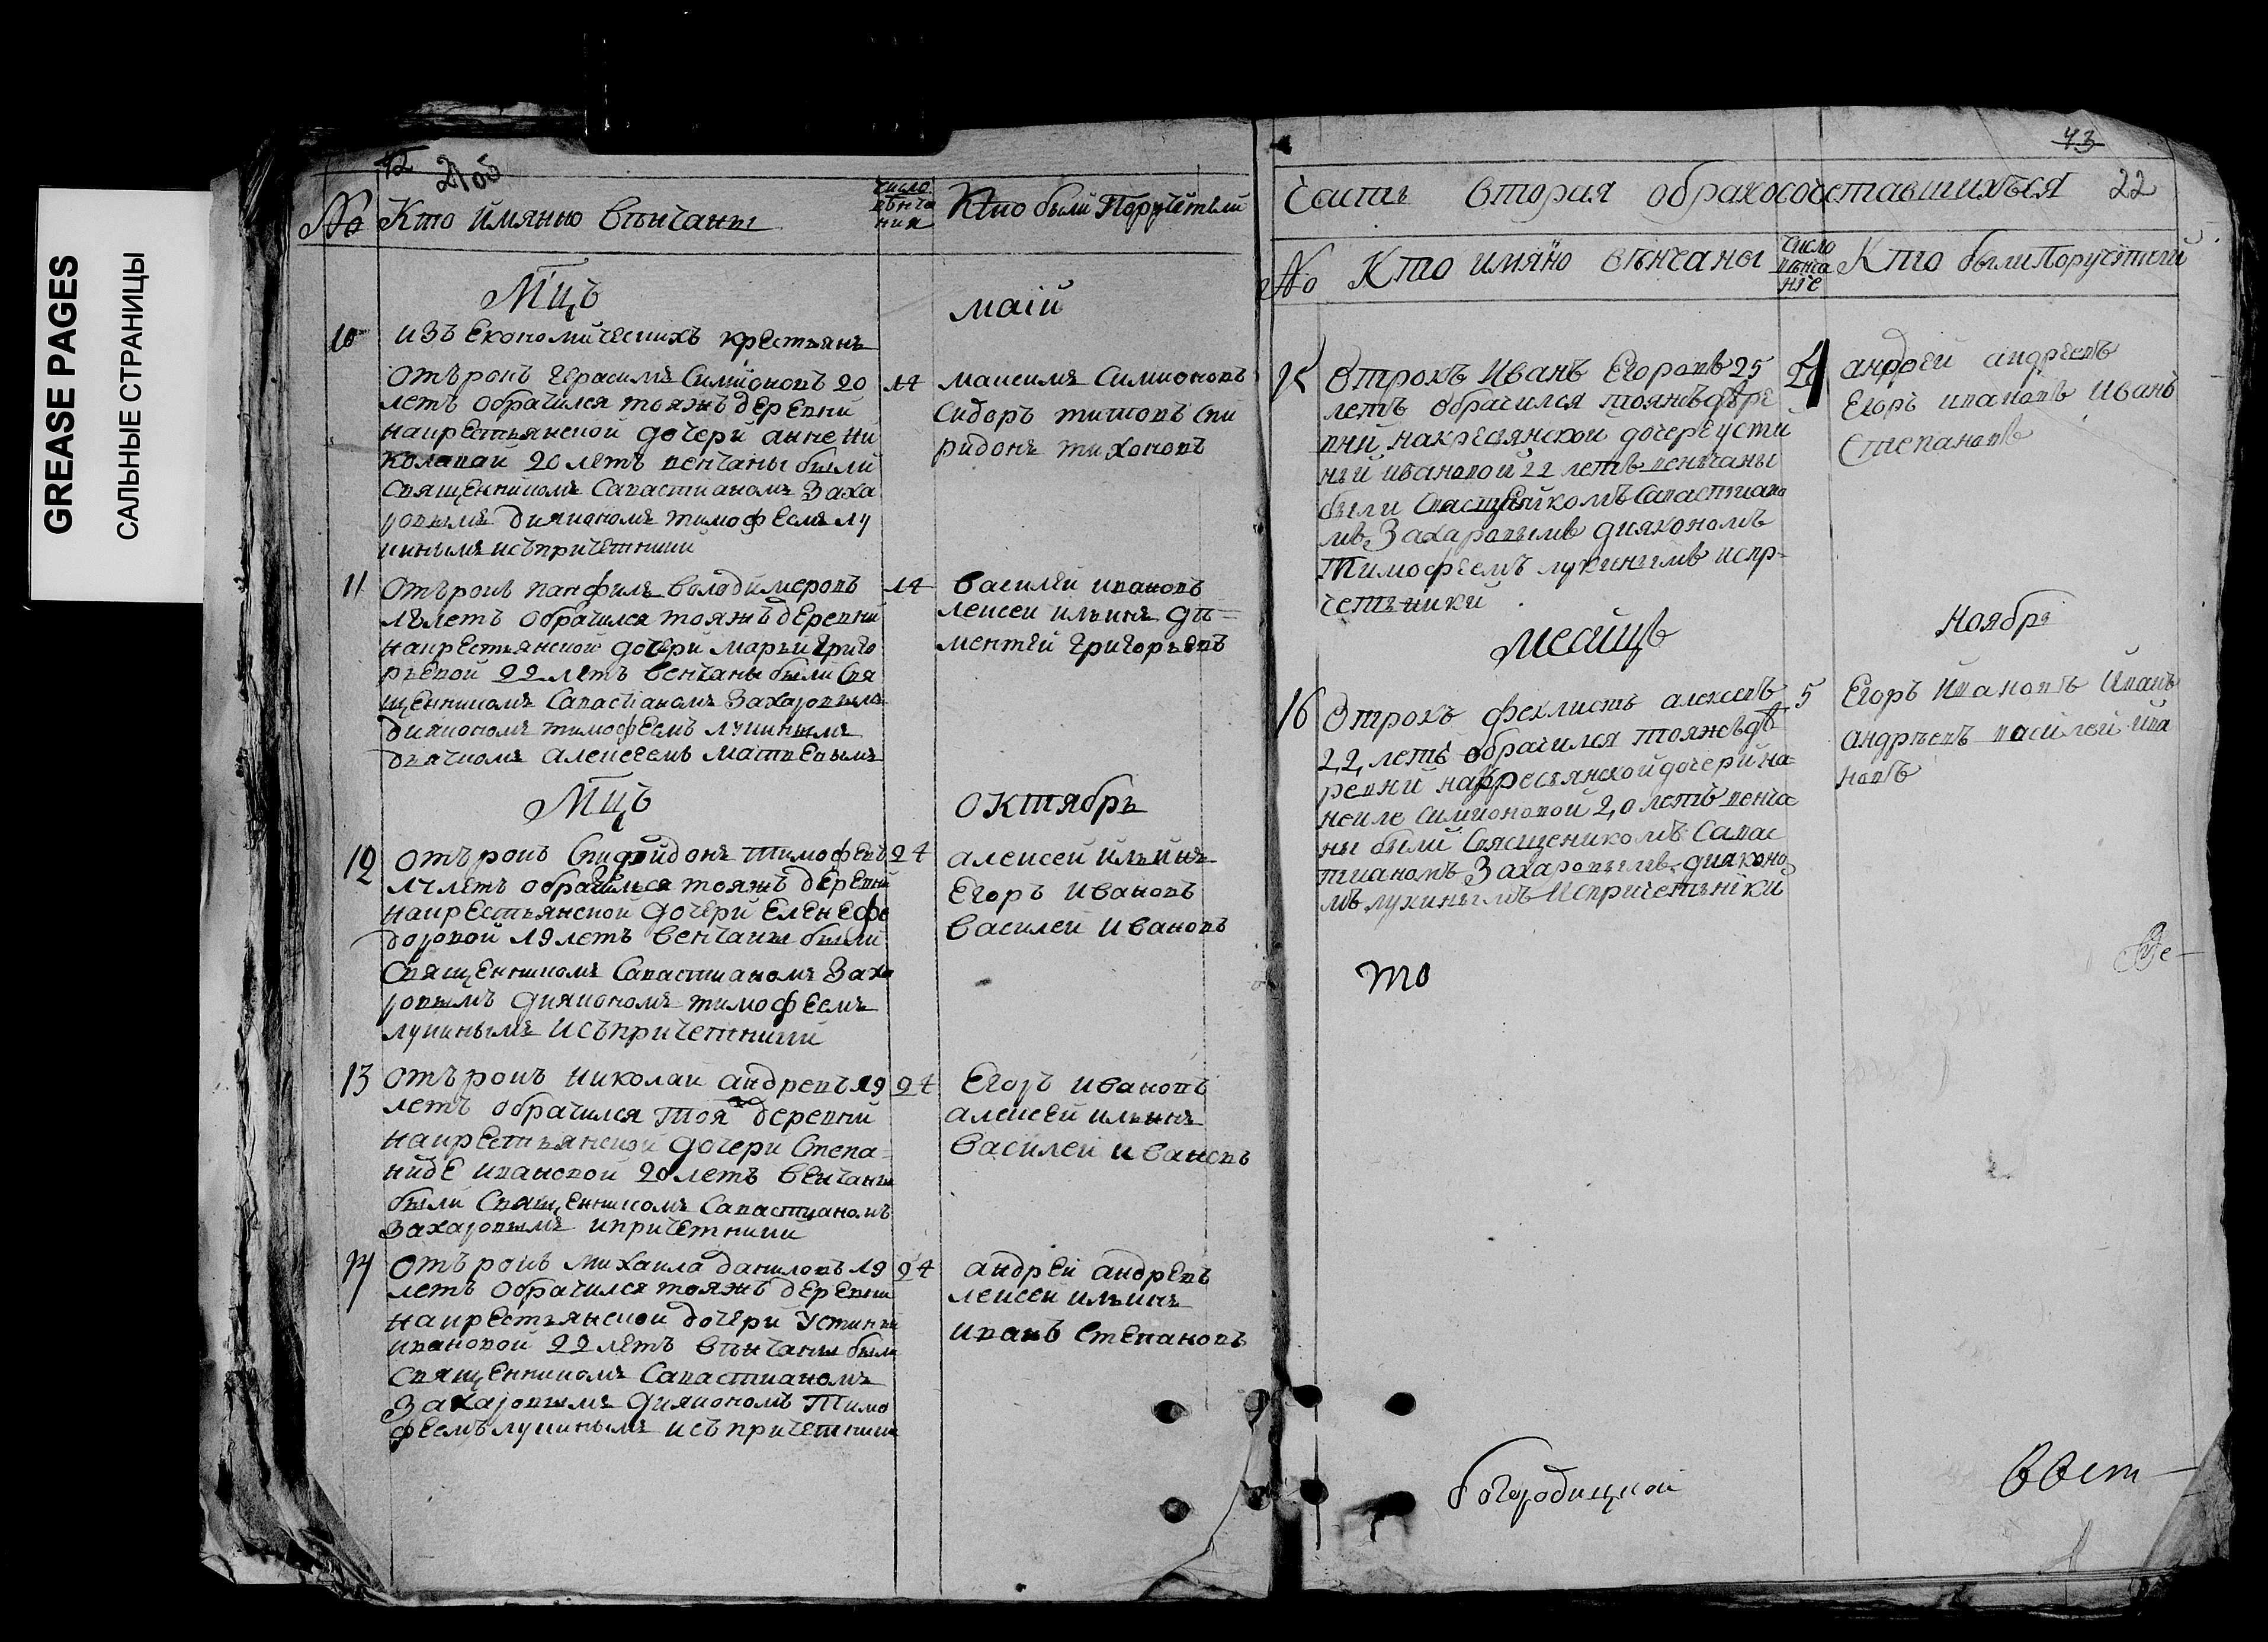 GREASE PAGES
САЛЬНЫЕ СТРАНИЦЫ
42
№ Кто имянно венчаны
число венча ния
Кто были Поручетели
Мцъ
маiи
10 изъ Економическихъ крестьянъ
отърокъ Герасимъ Симионовъ 20
14
летъ обрачился тояжъ деревни
накрестьянской дочери анне ни
колавай 20 летъ венчаны были
Священникомъ Савастианомъ Заха
ровымъ диякономъ тимофеемъ лу
кинымъ исъпричетники
максимъ Симионовъ
Сидоръ титовъ Спи
ридонъ тихоновъ
11 отърокъ панфилъ володимеровъ
14
летъ обрачился тояжъ деревни
накрестьянской дочери марьи григо
рьевой 22 летъ венчаны были Свя
щенникомъ Савастiаномъ Захаровымъ
дияконом тимофеемъ лукинымъ
дьячкомъ алексеемъ матвеевымъ
василей ивановъ
лексеи ильинъ ди=
ментей григорьевъ
Мцъ
октябрь
12 отърокъ Спиридонъ тимофевъ
24
летъ обрачился тояжъ деревни
накрестьянской дочери Елене фе
доровой 19 летъ венчаны были
Священникомъ Савастианомъ Заха
ровымъ дияконом тимофеемъ
лукинымъ исъпричетники
алексей ильинъ
Егоръ ивановъ
василей ивановъ
13 отърокъ николаи андревъ 19
24
летъ обрачился тояжъ деревни
накрестьянской дочери Степа-
ниде ивановой 20 летъ венчаны
были Священникомъ Савастианомъ
Захаровымъ ипричетники
Егоръ ивановъ
алексеи ильинъ
василеи ивановъ
14 отърокъ михаила даниловъ 19
24
летъ обрачился тояжъ деревни
накрестьянской дочери устиньи
ивановой 22 летъ венчаны были
Священникомъ Савастианомъ
Захаровымъ дияконом тимо
феемъ лукинымъ исъпричетники
андрей андревъ
лексеи ильинъ
иванъ степановъ
43
Часть вторая обракосочетавшихъся 22
№ Кто имяно венчаны
число венча нiе
Кто были Поручетели
15 отрокъ Иванъ Егоровъ 25
24
летъ обрачился тояжъ дере
вни накресянской дочере усти
ньи ивановой 22 летъ венчаны
были Савастиано
мъ Захаровымъ дияконом
тимофеемъ лукинымъ испр-
четники
андрей андреевъ
Егоръ ивановъ Иванъ
Степановъ
месяцъ
Ноябрь
16 отрокъ феклистъ алексевъ
5
22 летъ обрачился тояжъ де
ревни накресянской дочери на=
неиле Симионовой 20 летъ венча
ны были Священикомъ Савас
тианомъ Захаровымъ дияконо
мъ лукинымъ Испричетьники
Егоръ Ивановъ Иванъ
андреевъ василей ива
новъ
то
богородицкой